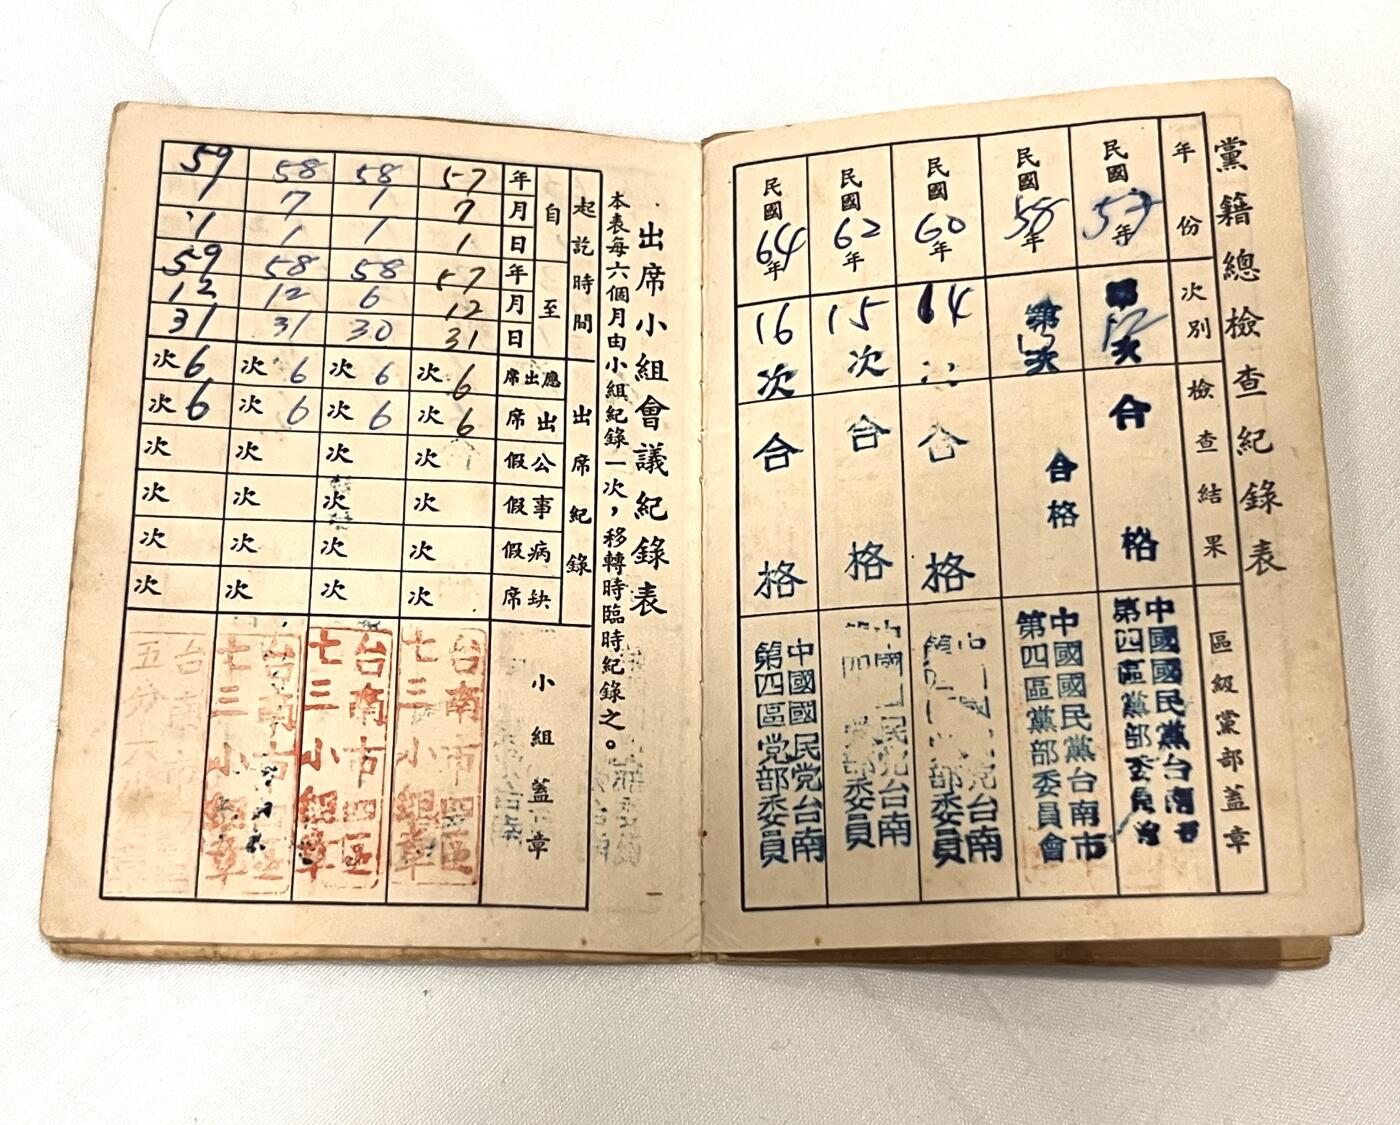 黨籍總檢查紀錄表
年份
次別
檢查結果
區級黨部蓋章
民國57年
次
合格
中國國民黨台南市
第四區黨部委員會
民國58年
第 次
合格
中國國民黨台南市
第四區黨部委員會
民國60年
14
合格
台南
部委員
民國62年
15次
合格
民党台南
部委員
民國64年
16次
合格
中國國民党台南
第四區党部委員
出席小組會議紀錄表
本表每六個月由小組紀錄一次，移轉時臨時紀錄之。
起訖時間
自
年月日
至
年月日
出席紀錄
應出席
出席
公假
事假
病假
缺席
小組蓋章
57
7
1
57
12
31
次6
次6
次
次
次
次
台南市四區
七三小組章
58
1
1
58
6
30
次6
次6
次
次
次
次
台南市四區
七三小組章
58
7
1
58
12
31
次6
次6
次
次
次
次
台南市
七三小組章
59
1
1
59
12
31
次6
次6
次
次
次
次
台南市
五
一